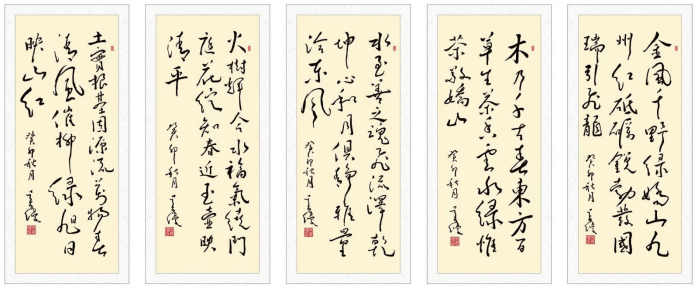 金風千野綠嬌山九
州紅砥礪銳勁發國
瑞引飛龍
癸卯秋月
木乃千古春東方百
草生茶香雲水綠惟
茶敬嬌山
癸卯秋月
水至善之魂飛流澤乾
坤心和月俱靜雅量
洽東風
癸卯秋月
火樹輝今水福氣繞門
庭花綻知春近玉壺映
清平
癸卯秋月
土實根基固源流萬物春
清風催柳綠旭日
映山紅
癸卯秋月